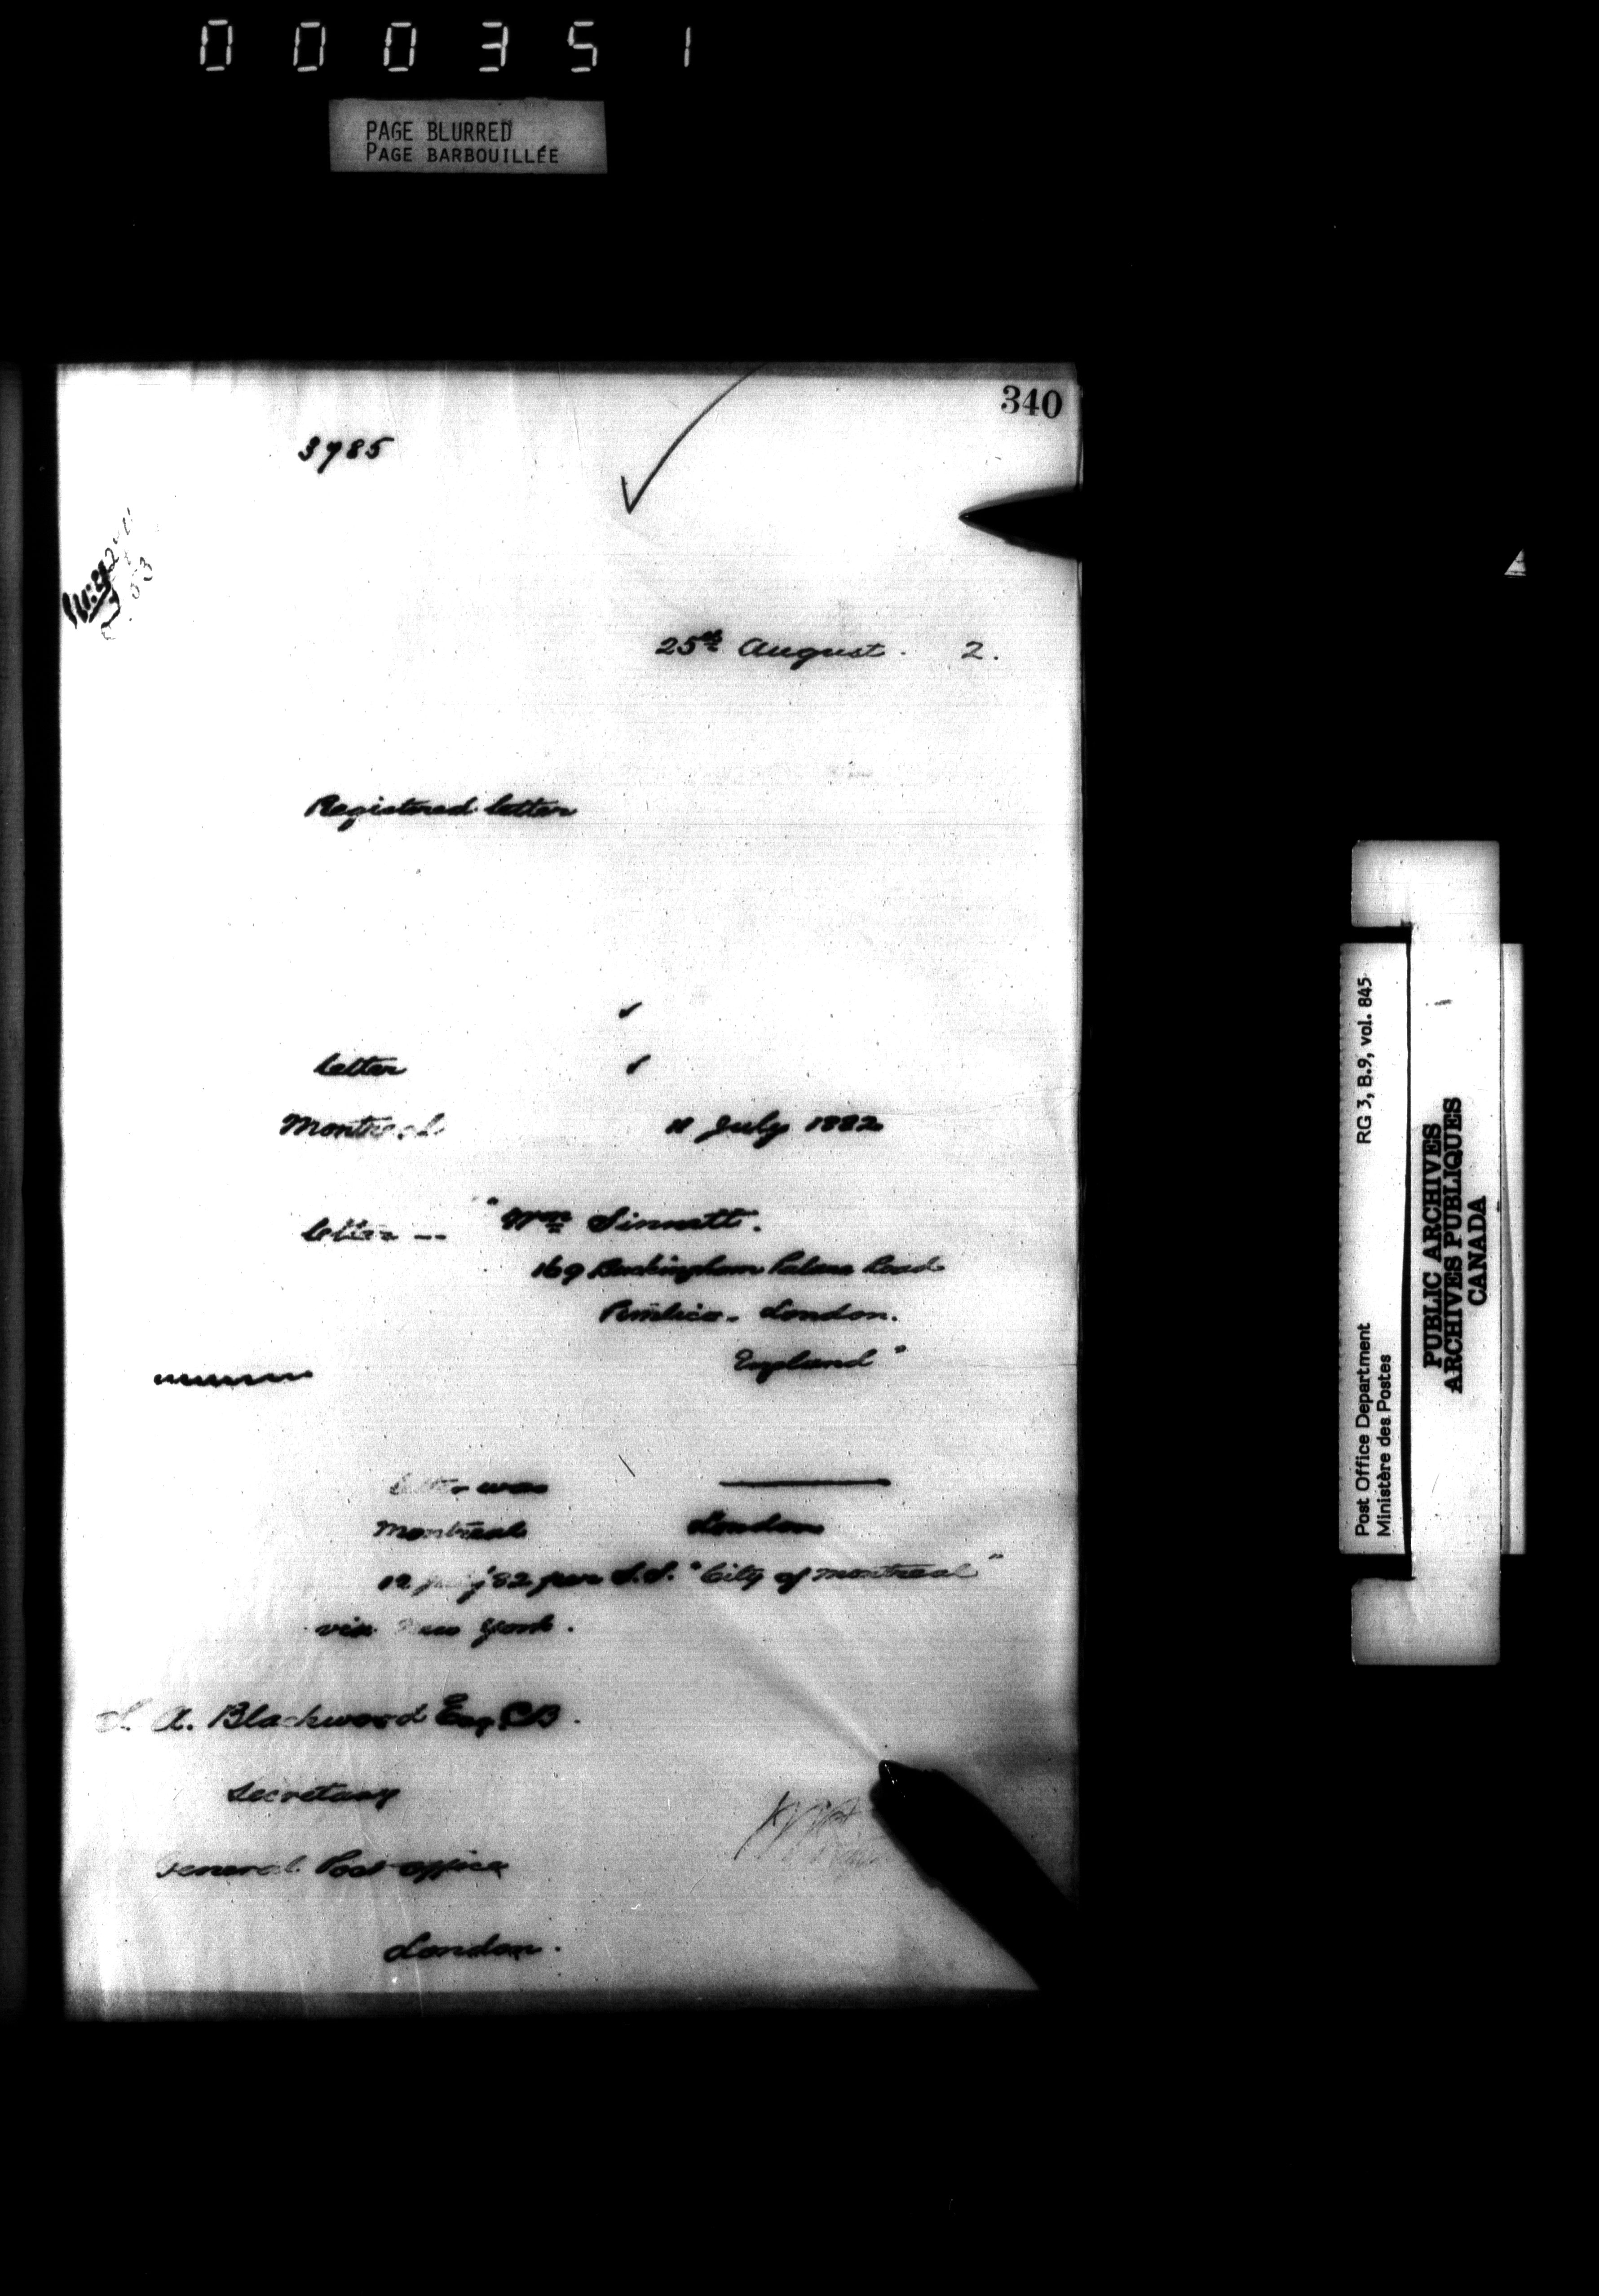 000351
PAGE BLURRED
PAGE BARBOUILLÉE
340
3985
25th August. 2.
Registered letter
letter
Montreal 11 July 1882
letter -- "Wm Sinnett.
169 Buckingham Palace Road
Pimlico. London.
England"
letter was
Montreal London
12 July '82 per S.S. "City of Montreal"
via New York.
S. A. Blackwood Esq. CB.
Secretary
General Post Office
London.
RG 3, B.9, vol. 845
Post Office Department
Ministère des Postes
PUBLIC ARCHIVES
ARCHIVES PUBLIQUES
CANADA